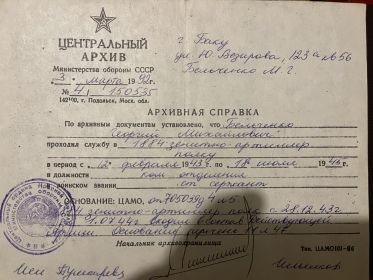 ЦЕНТРАЛЬНЫЙ
АРХИВ
Министерства обороны СССР
3 марта 1992 г.
№ 4/ 150535
142100, г. Подольск, Моск. обл.
г. Баку
ул. Ю. Везирова, 123а № 56
Бельченко М. Г.
АРХИВНАЯ СПРАВКА
По архивным документам установлено, что Бельченко
Георгий Михайлович
проходил службу в 1884 зенитно-артиллер
полку
в период с „12“ февраля 1943 г. по „18“ июля 1946 г.
в должности ком. отделения
воинском звании ст. сержант
ОСНОВАНИЕ: ЦАМО, оп.
зенитно-артиллер полк с 28.12.43 г.
входил в состав действующей
Армии. Основание перечень
Начальник архивохранилища
Тип. ЦАМО
Исп.